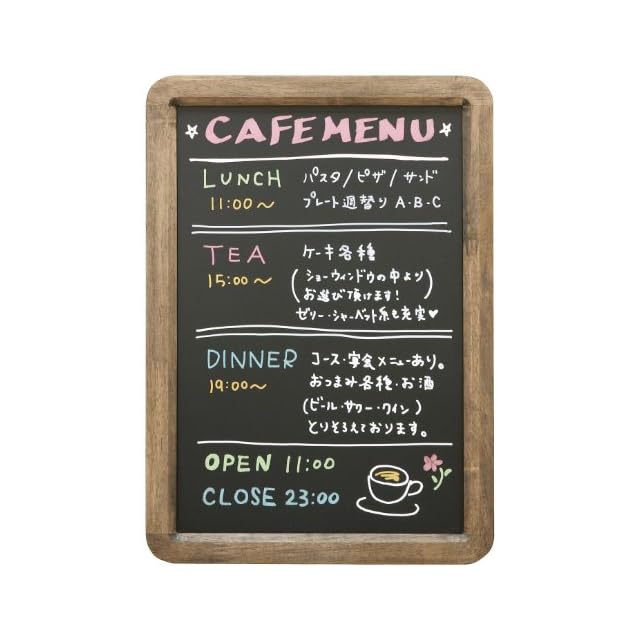 ☆ CAFE MENU ☆
LUNCH パスタ/ピザ/サンド
11:00〜 プレート週替り A・B・C
TEA ケーキ各種
15:00〜 (ショーウィンドウの中より
お選び頂けます!)
ゼリー・シャーベット系も充実♥
DINNER コース・宴会メニューあり。
19:00〜 おつまみ各種・お酒
(ビール・サワー・ワイン)
とりそろえております。
OPEN 11:00
CLOSE 23:00